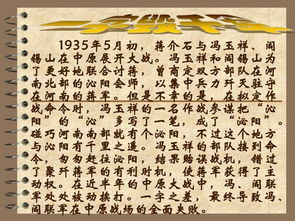 1935年5月初，蒋介石与冯玉祥、阎
锡山在中原展开大战。冯玉祥和阎锡山为
了更好地联合讨蒋，曾商定双方部队在河
南北部的沁阳会师，以集中兵力歼灭驻守
在河南的蒋军。但是不幸的是，在拟定作
战命令时，冯玉祥的一名作战参谋把“沁
阳”的“沁”多写了一笔，成了“泌阳”。
碰巧河南南部就有个泌阳，不过这个地方
与沁阳有千里之遥。冯玉祥的部队接到命
令，匆匆赶往泌阳，结果贻误战机，错过
了聚歼蒋军的有利时机，使蒋军获得了主
动权。在近半年的中原大战中，冯、阎联
军处处被动挨打。一字之差，最终导致冯、
阎联军在中原战场的全面失败。